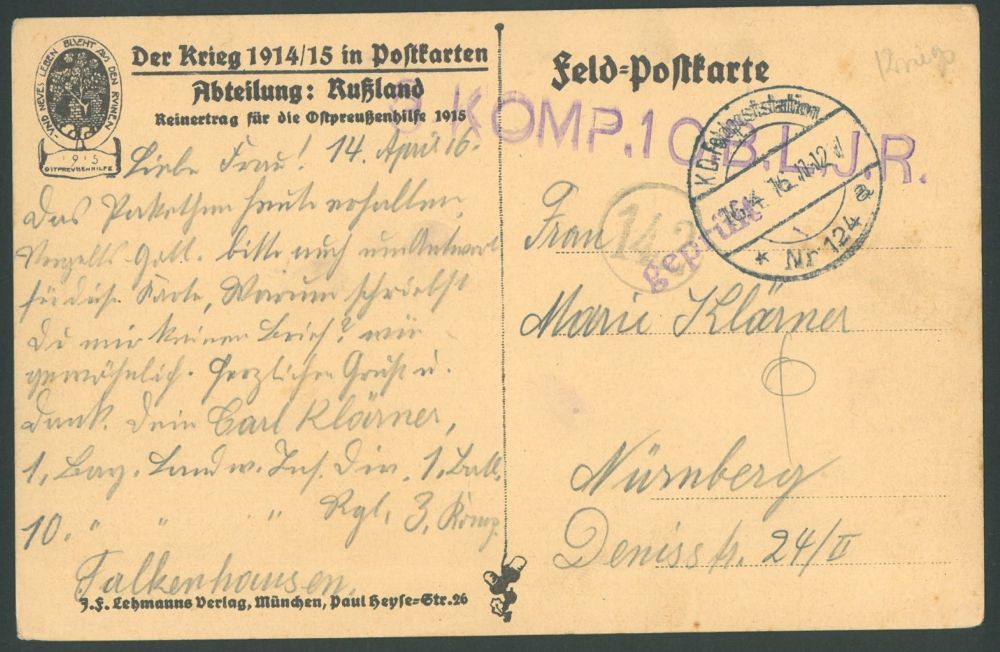 UND NEUES LEBEN BLUEHT AUS DEN RUINEN
1915
OSTPREUSSENHILFE
Der Krieg 1914/15 in Postkarten
Abteilung: Rußland
Reinertrag für die Ostpreußenhilfe 1915
Liebe Frau! 14. April 16.
Das Paketchen heute erhalten,
Vergelts Gott. bitte auch um Antwort
für diese Karte, Warum schreibst
Du mir keinen Brief? wie
gewöhnlich. Herzlichen Gruß u.
Dank. Dein Carl Klärner,
1. Bay. Landw. Inf. Div. 1. Batl.
10. " " " Rgl. 3. Komp.
Falkenhausen.
J.F. Lehmanns Verlag, München, Paul Heyse-Str. 26
Feld-Postkarte
KOMP.10.B.L.J.R.
K.D. Feldpoststation
16.4.16.
* Nr 124 a
142
geprüft
Frau
Marie Klärner
Nürnberg
Denisstr. 24/II